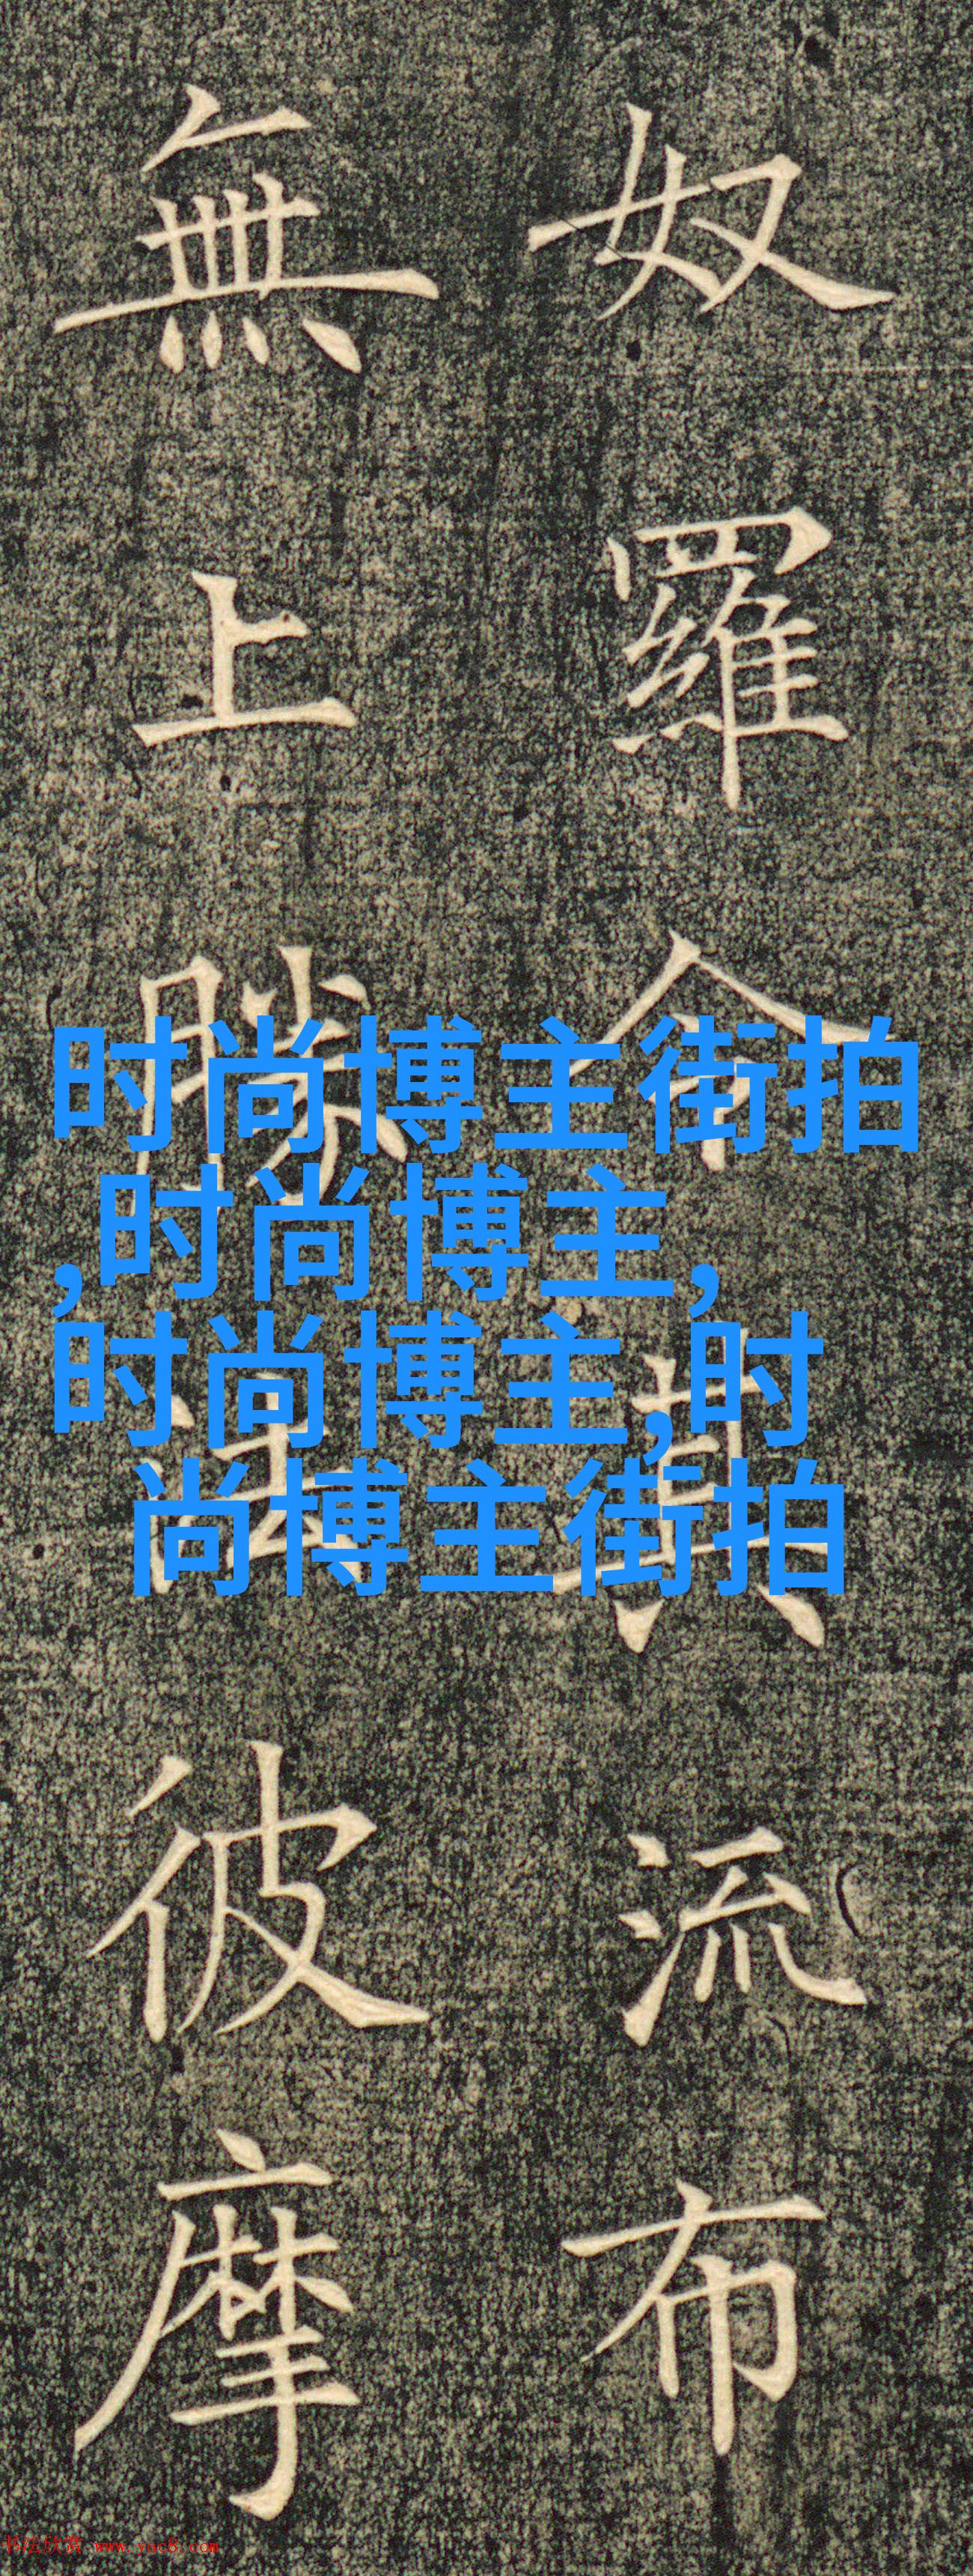 奴羅令其流布
無上勝法彼摩
时尚博主街拍
,时尚博主,
时尚博主,时
尚博主街拍
书法欣赏 www.yac8.com